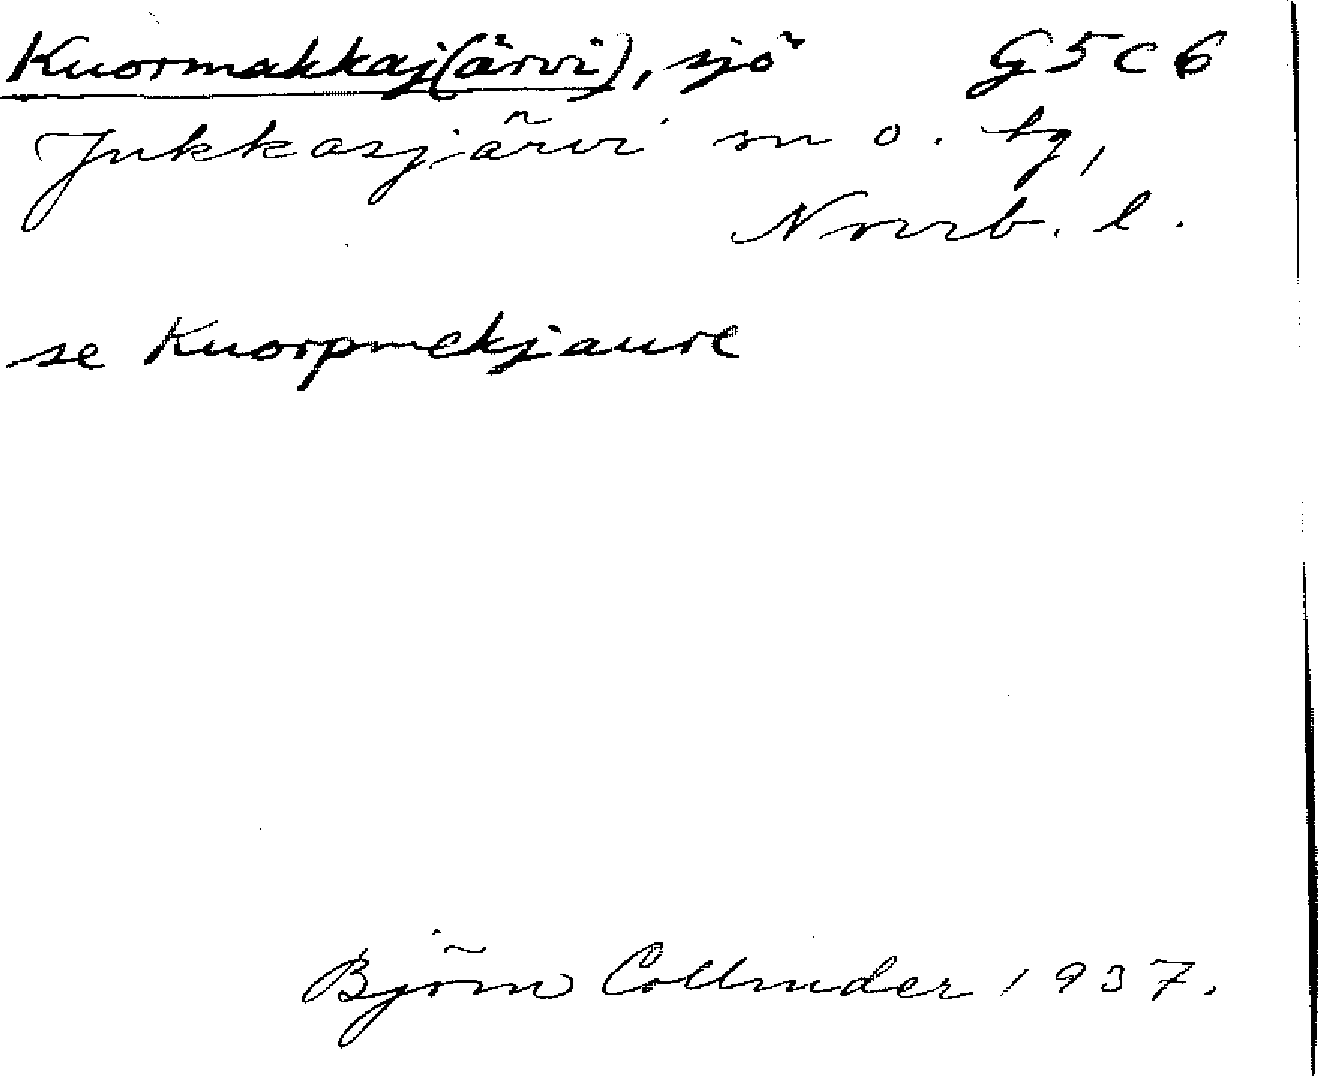 Kuormakkaj(ärvi), sjö G5c6
Jukkasjärvi sn o. tg,
Norrb. l.
se Kuorpmekjaure
Björn Collinder 1937.